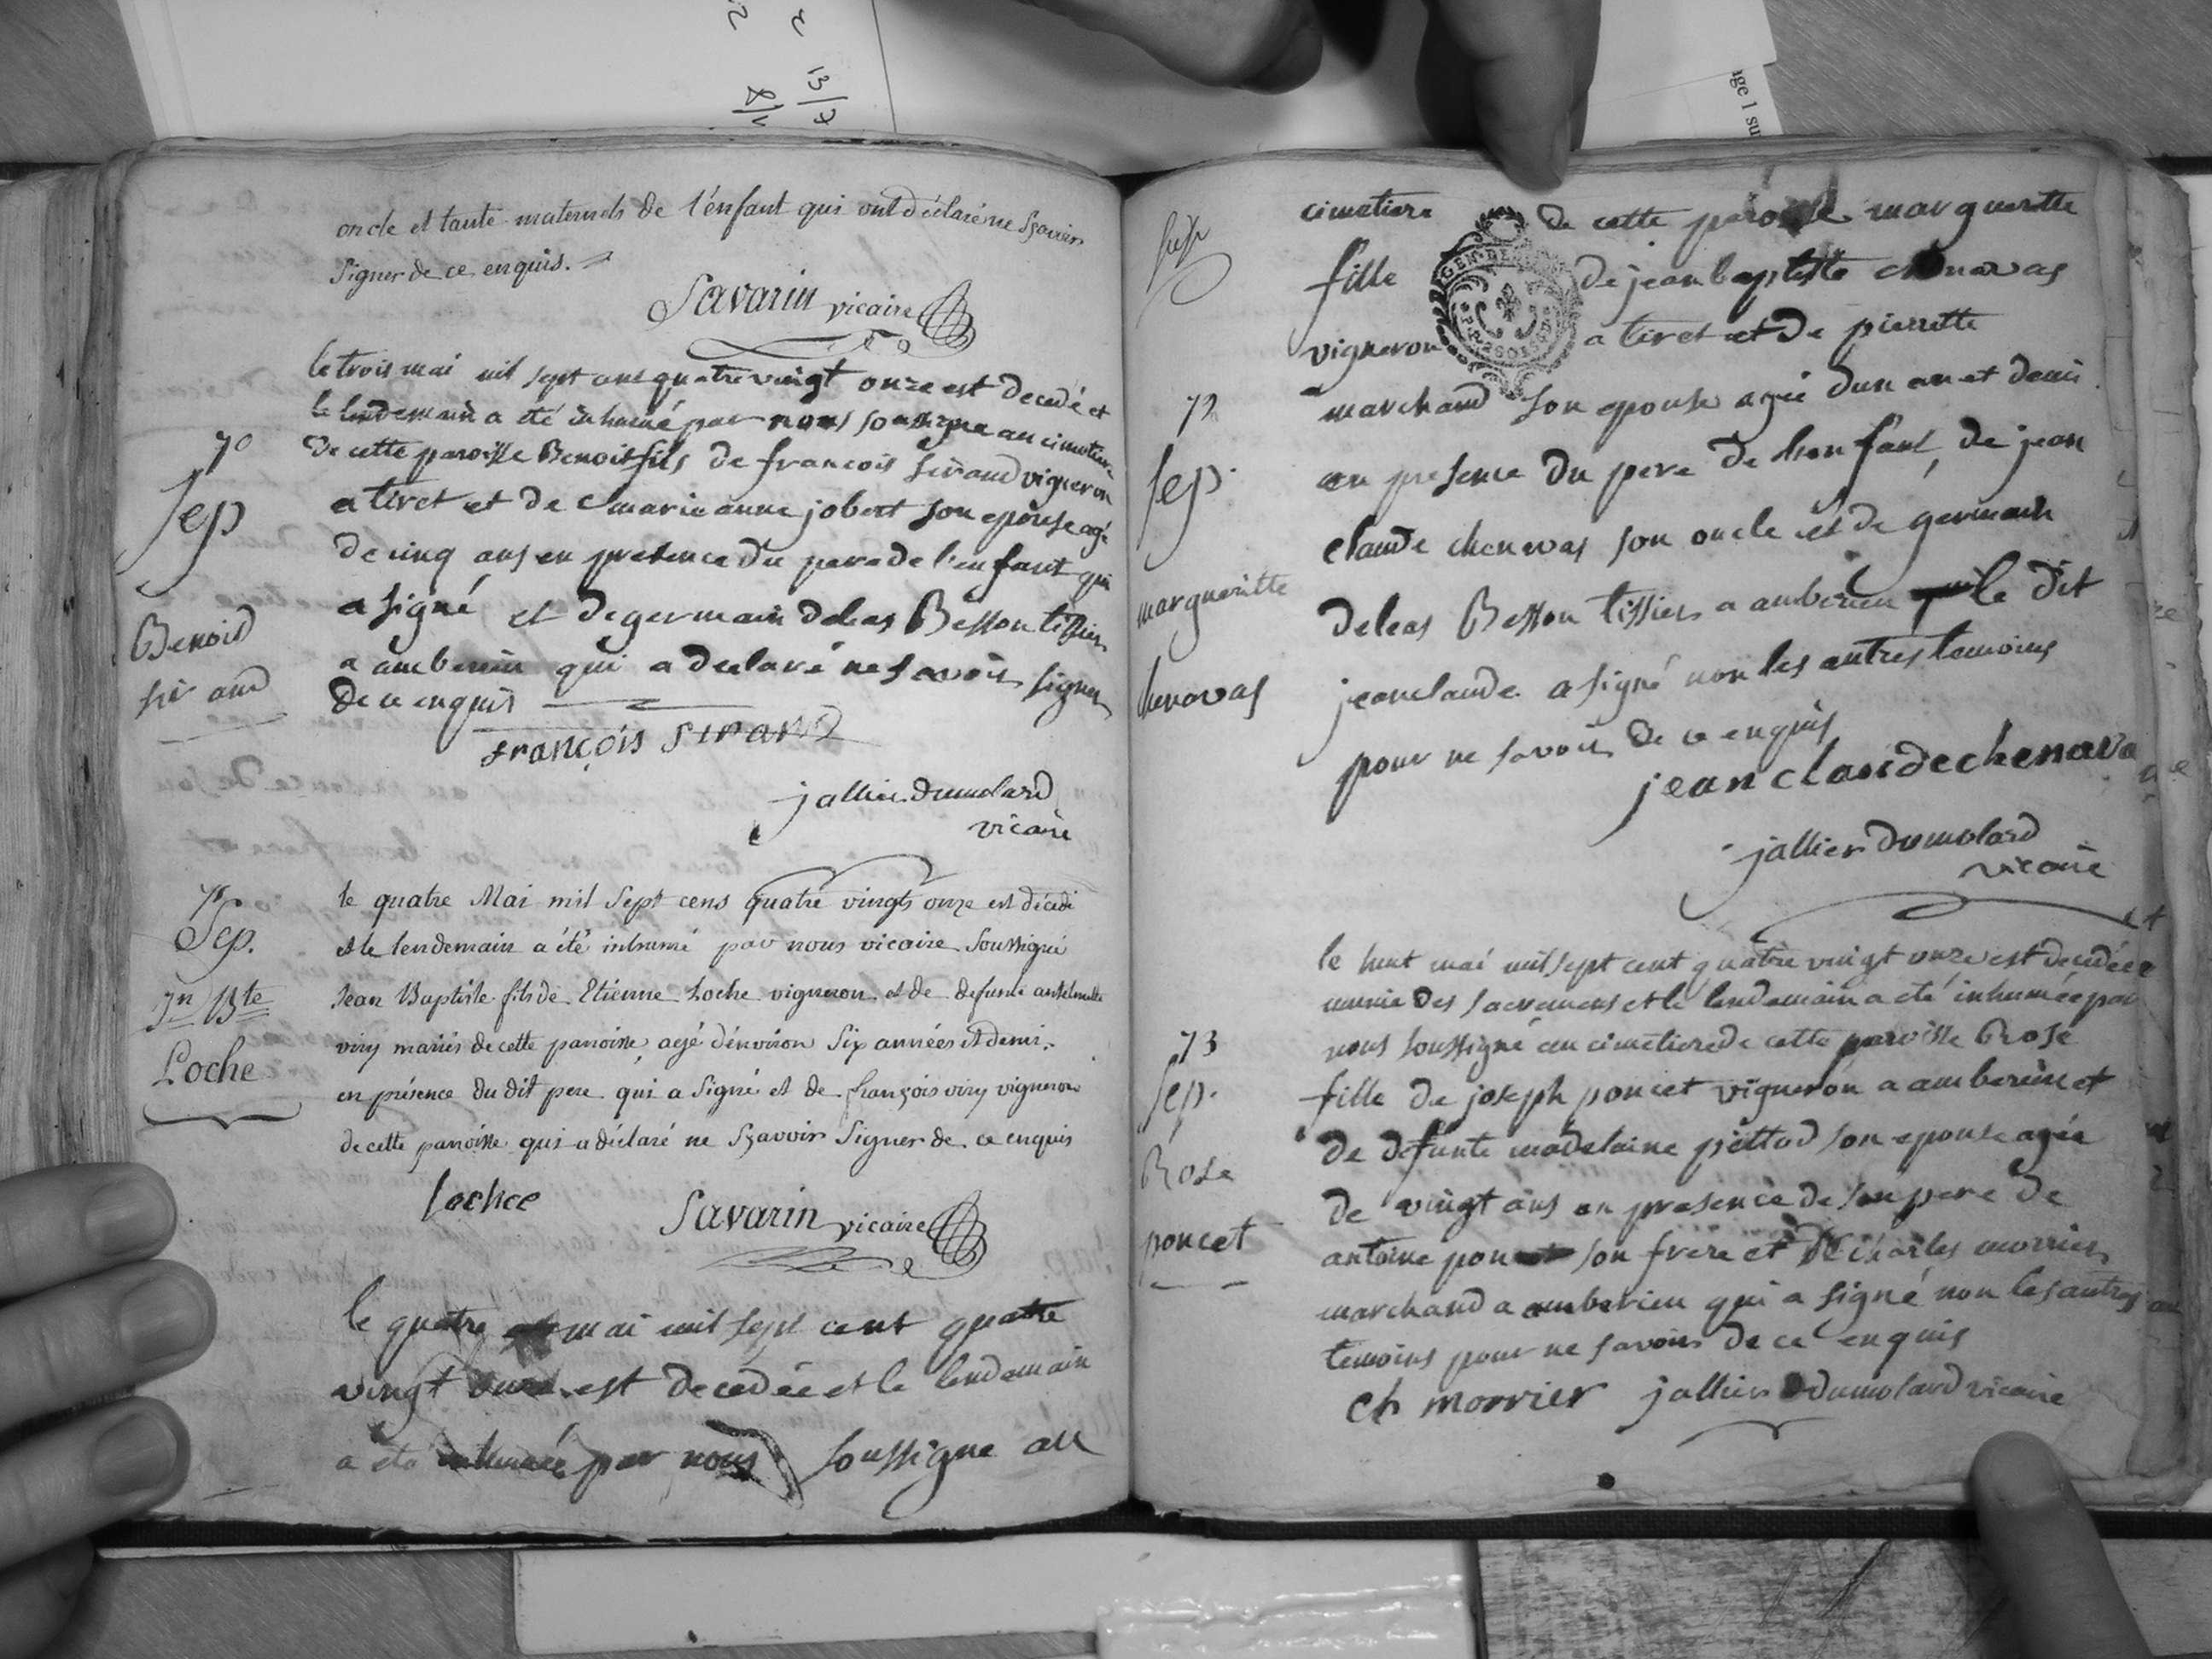 oncle et tante maternels de l'enfant qui ont déclaré ne sçavoir
signer de ce enquis.
Savarin vicaire
le trois mai mil sept cent quatre vingt onze est decedé et
le lendemain a été inhumé par nous soussigne au cimetiere
70
de cette paroisse Benoit fils de francois sirand vigneron
Sep
a tiret et de marie anne jobert son epouse agé
de cinq ans en presence du pere de l'enfant qui
a signé et de germain deleas Besson tissier
Benoit
a amberieu qui a declaré ne savoir signer
sirand
de ce enquis
françois sirand
jallier dumolard
vicaire
71
le quatre Mai mil sept cens quatre vingts onze est décédé
Sep.
et le lendemain a été inhumé par nous vicaire soussigné
Jn Bte
Jean Baptiste fils de Etienne Loche vigneron et de defunte anthelmette
viry mariés de cette paroisse, agé d'environ six années et demi,
Loche
en présence du dit pere qui a signé et de françois viry vigneron
de cette paroisse qui a déclaré ne sçavoir signer de ce enquis
lochce
Savarin vicaire
le quatre mai mil sept cent quatre
vingt onze est decedée et le lendemain
a été inhumée par nous soussigne au
cimetiere de cette paroisse margueritte
fille de jean baptiste chenavas
GEN. DE
vigneron a tiret et de pierrette
72
marchand son epouse agée dun an et demi
sep.
en presence du pere de lenfant, de jean
claude chenavas son oncle et de germain
margueritte
deleas Besson tissier a amberieu le dit
chenavas
jean claude a signé non les autres temoins
pour ne savoir de ce enquis
jean claude chenava
jallier dumolard
vicaire
le huit mai mil sept cent quatre vingt onze est decedée
munie des sacremens et le lendemain a été inhumée par
73
nous soussigné au cimetiere de cette paroisse Rose
sep.
fille de joseph poncet vigneron a amberieu et
de defunte madelaine pittod son epouse agée
Rose
de vingt ans en presence de son pere de
poncet
antoine son frere et de charles morrier
marchand a amberieu qui a signé non les autres
temoins pour ne savoir de ce enquis
ch morrier jallier dumolard vicaire
2
13/7
8/1
age 1 su